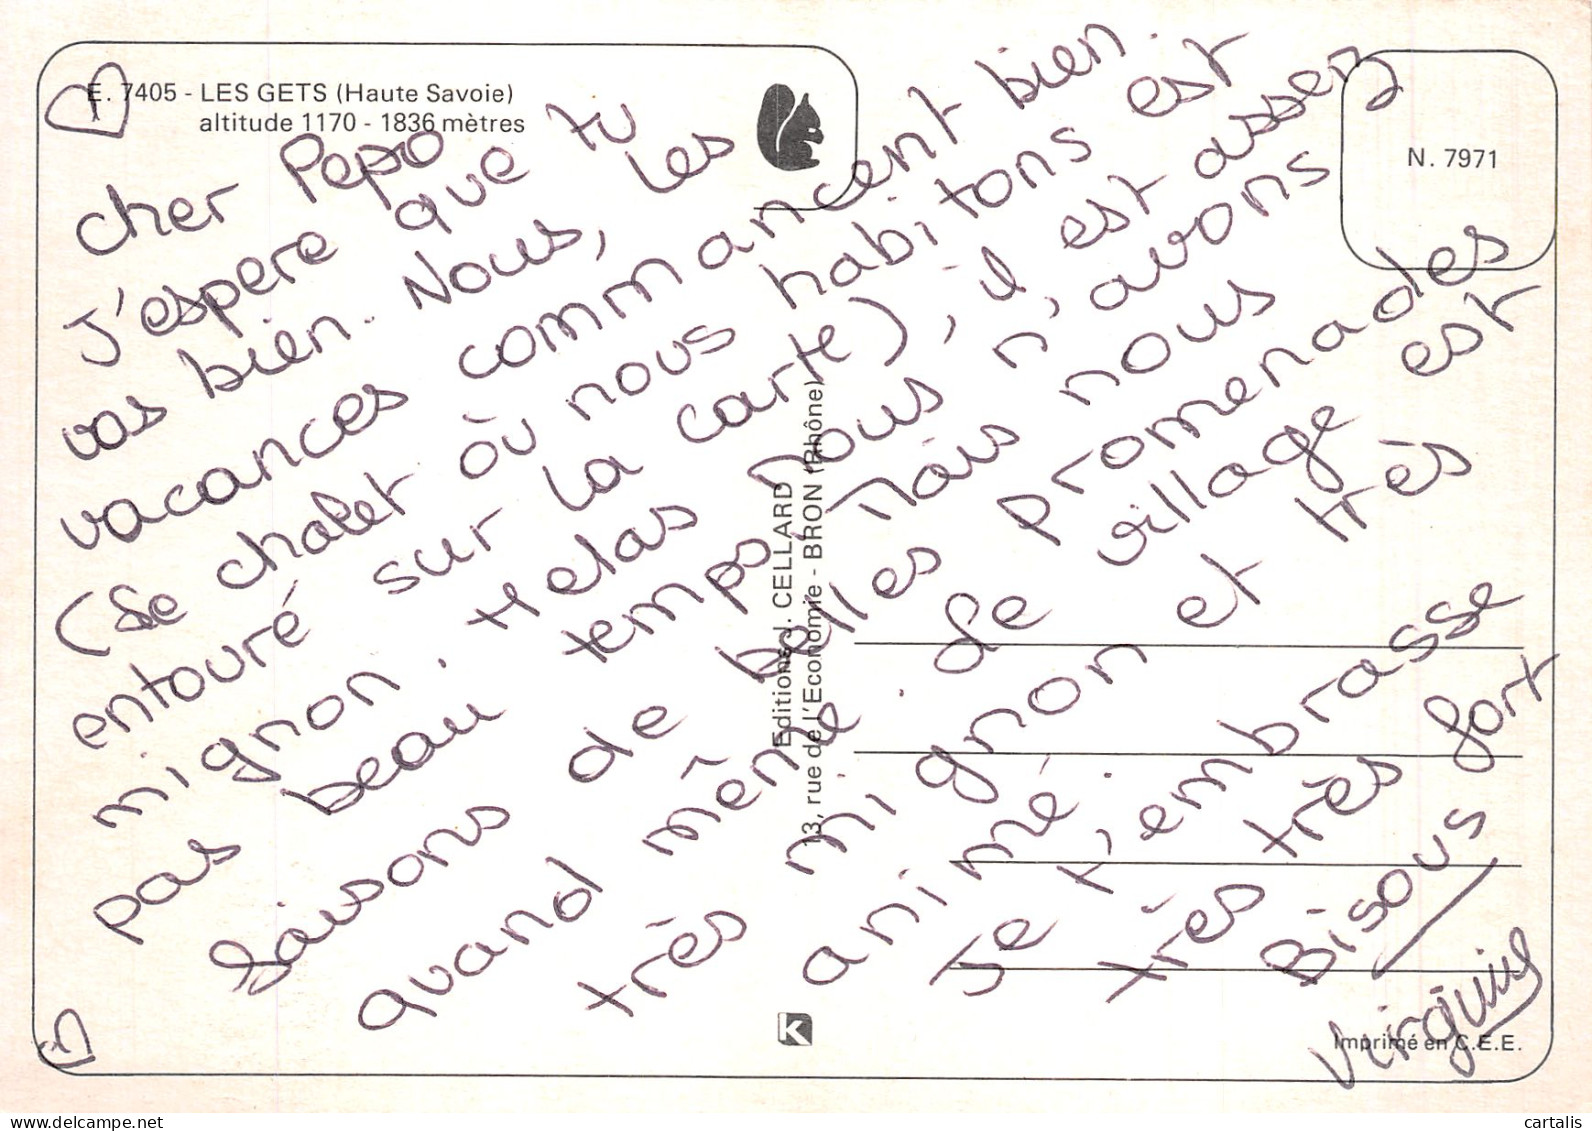 E. 7405 - LES GETS (Haute Savoie)
altitude 1170 - 1836 mètres
N. 7971
cher Pepo
J'espere que tu
vas bien. Nous, les
vacances commancent bien.
(Le chalet où nous habitons est
entouré sur la carte), il est assez
mignon. Helas nous n'avons
pas beau temps, mais nous
faisons de belles promenades
quand même. Le village est
très mignon et très
animé.
Je t'embrasse
très très fort
Bisous
Virginie
Editions J. CELLARD
13, rue de l'Economie - BRON (Rhône)
K
Imprimé en C.E.E.
www.delcampe.net
cartalis